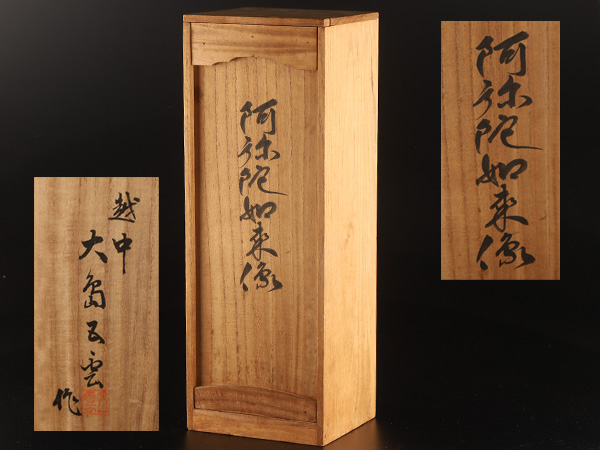 阿弥陀如来像
阿弥陀如来像
越中
大島五雲
作